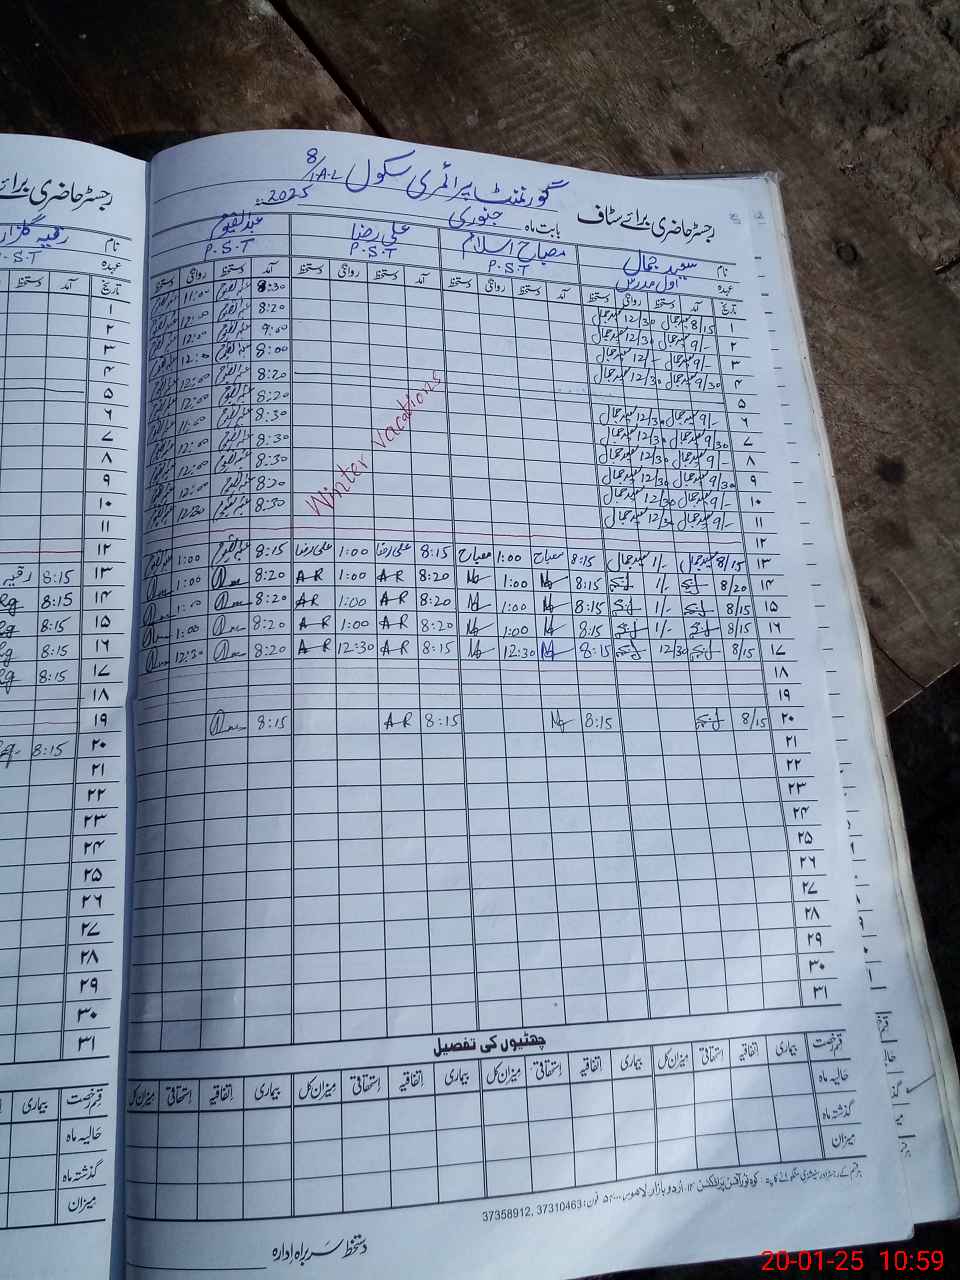 گورنمنٹ پرائمری سکول 8/1.A.L
رجسٹر حاضری برائے سٹاف
بابت ماہ جنوری 2025ء
نام سعید جمال مصباح اسلام علی رضا عبدالقیوم
عہدہ اول مدرس P.S.T P.S.T P.S.T
تاریخ آمد دستخط روانگی دستخط آمد دستخط روانگی دستخط آمد دستخط روانگی دستخط آمد دستخط روانگی دستخط
۱ 8/15 سعید جمال 12/30 سعید جمال 8:30 عبدالقیوم 11:00 عبدالقیوم
۲ 9/- سعید جمال 12/30 سعید جمال 8:20 عبدالقیوم 12:00 عبدالقیوم
۳ 9/- سعید جمال 12/- سعید جمال 9:00 عبدالقیوم 12:00 عبدالقیوم
۴ 9/30 سعید جمال 12/30 سعید جمال 8:00 عبدالقیوم 12:00 عبدالقیوم
۵ 8:20 12:00
۶ 9/- سعید جمال 12/30 سعید جمال 8:20 عبدالقیوم 12:00 عبدالقیوم
۷ 9/30 سعید جمال 12/30 سعید جمال 8:30 عبدالقیوم 11:00 عبدالقیوم
۸ 9/- سعید جمال 12/30 سعید جمال 8:30 عبدالقیوم 12:00 عبدالقیوم
۹ 9/30 سعید جمال 12/30 سعید جمال 8:30 عبدالقیوم 12:00 عبدالقیوم
۱۰ 9/- سعید جمال 12/30 سعید جمال 8:20 عبدالقیوم 12:00 عبدالقیوم
۱۱ 9/- سعید جمال 12/30 سعید جمال 8:30 عبدالقیوم 12:30 عبدالقیوم
Winter Vacations
۱۲
۱۳ 8/15 سعید جمال 1/- سعید جمال 8:15 مصباح 1:00 مصباح 8:15 علی رضا 1:00 علی رضا 8:15 عبدالقیوم 1:00 عبدالقیوم
۱۴ 8/20 1/- 8:15 1:00 8:20 AR 1:00 AR 8:20 1:00
۱۵ 8/15 1/- 8:15 1:00 8:20 AR 1:00 AR 8:20 1:00
۱۶ 8/15 1/- 8:15 1:00 8:20 AR 1:00 AR 8:20 1:00
۱۷ 8/15 12/30 8:15 12:30 8:15 AR 12:30 AR 8:20 12:30
۱۸
۱۹
۲۰ 8/15 8:15 8:15 AR 8:15
۲۱
۲۲
۲۳
۲۴
۲۵
۲۶
۲۷
۲۸
۲۹
۳۰
۳۱
چھٹیوں کی تفصیل
قسم رخصت بیماری اتفاقیہ استحقاقی میزان کل بیماری اتفاقیہ استحقاقی میزان کل بیماری اتفاقیہ استحقاقی میزان کل بیماری اتفاقیہ استحقاقی میزان کل
حالیہ ماہ
گذشتہ ماہ
میزان
37358912, 37310463 :فون
دستخط سربراہ ادارہ
رجسٹر حاضری برائے
نام رقیہ گلزار
عہدہ P.S.T
تاریخ آمد دستخط
۱
۲
۳
۴
۵
۶
۷
۸
۹
۱۰
۱۱
۱۲
۱۳ 8:15 رقیہ
۱۴ 8:15 Rg
۱۵ 8:15 Rg
۱۶ 8:15 Rg
۱۷ 8:15 Rg
۱۸
۱۹
۲۰ 8:15 Rg
۲۱
۲۲
۲۳
۲۴
۲۵
۲۶
۲۷
۲۸
۲۹
۳۰
۳۱
قسم رخصت بیماری
حالیہ ماہ
گذشتہ ماہ
میزان
20-01-25 10:59